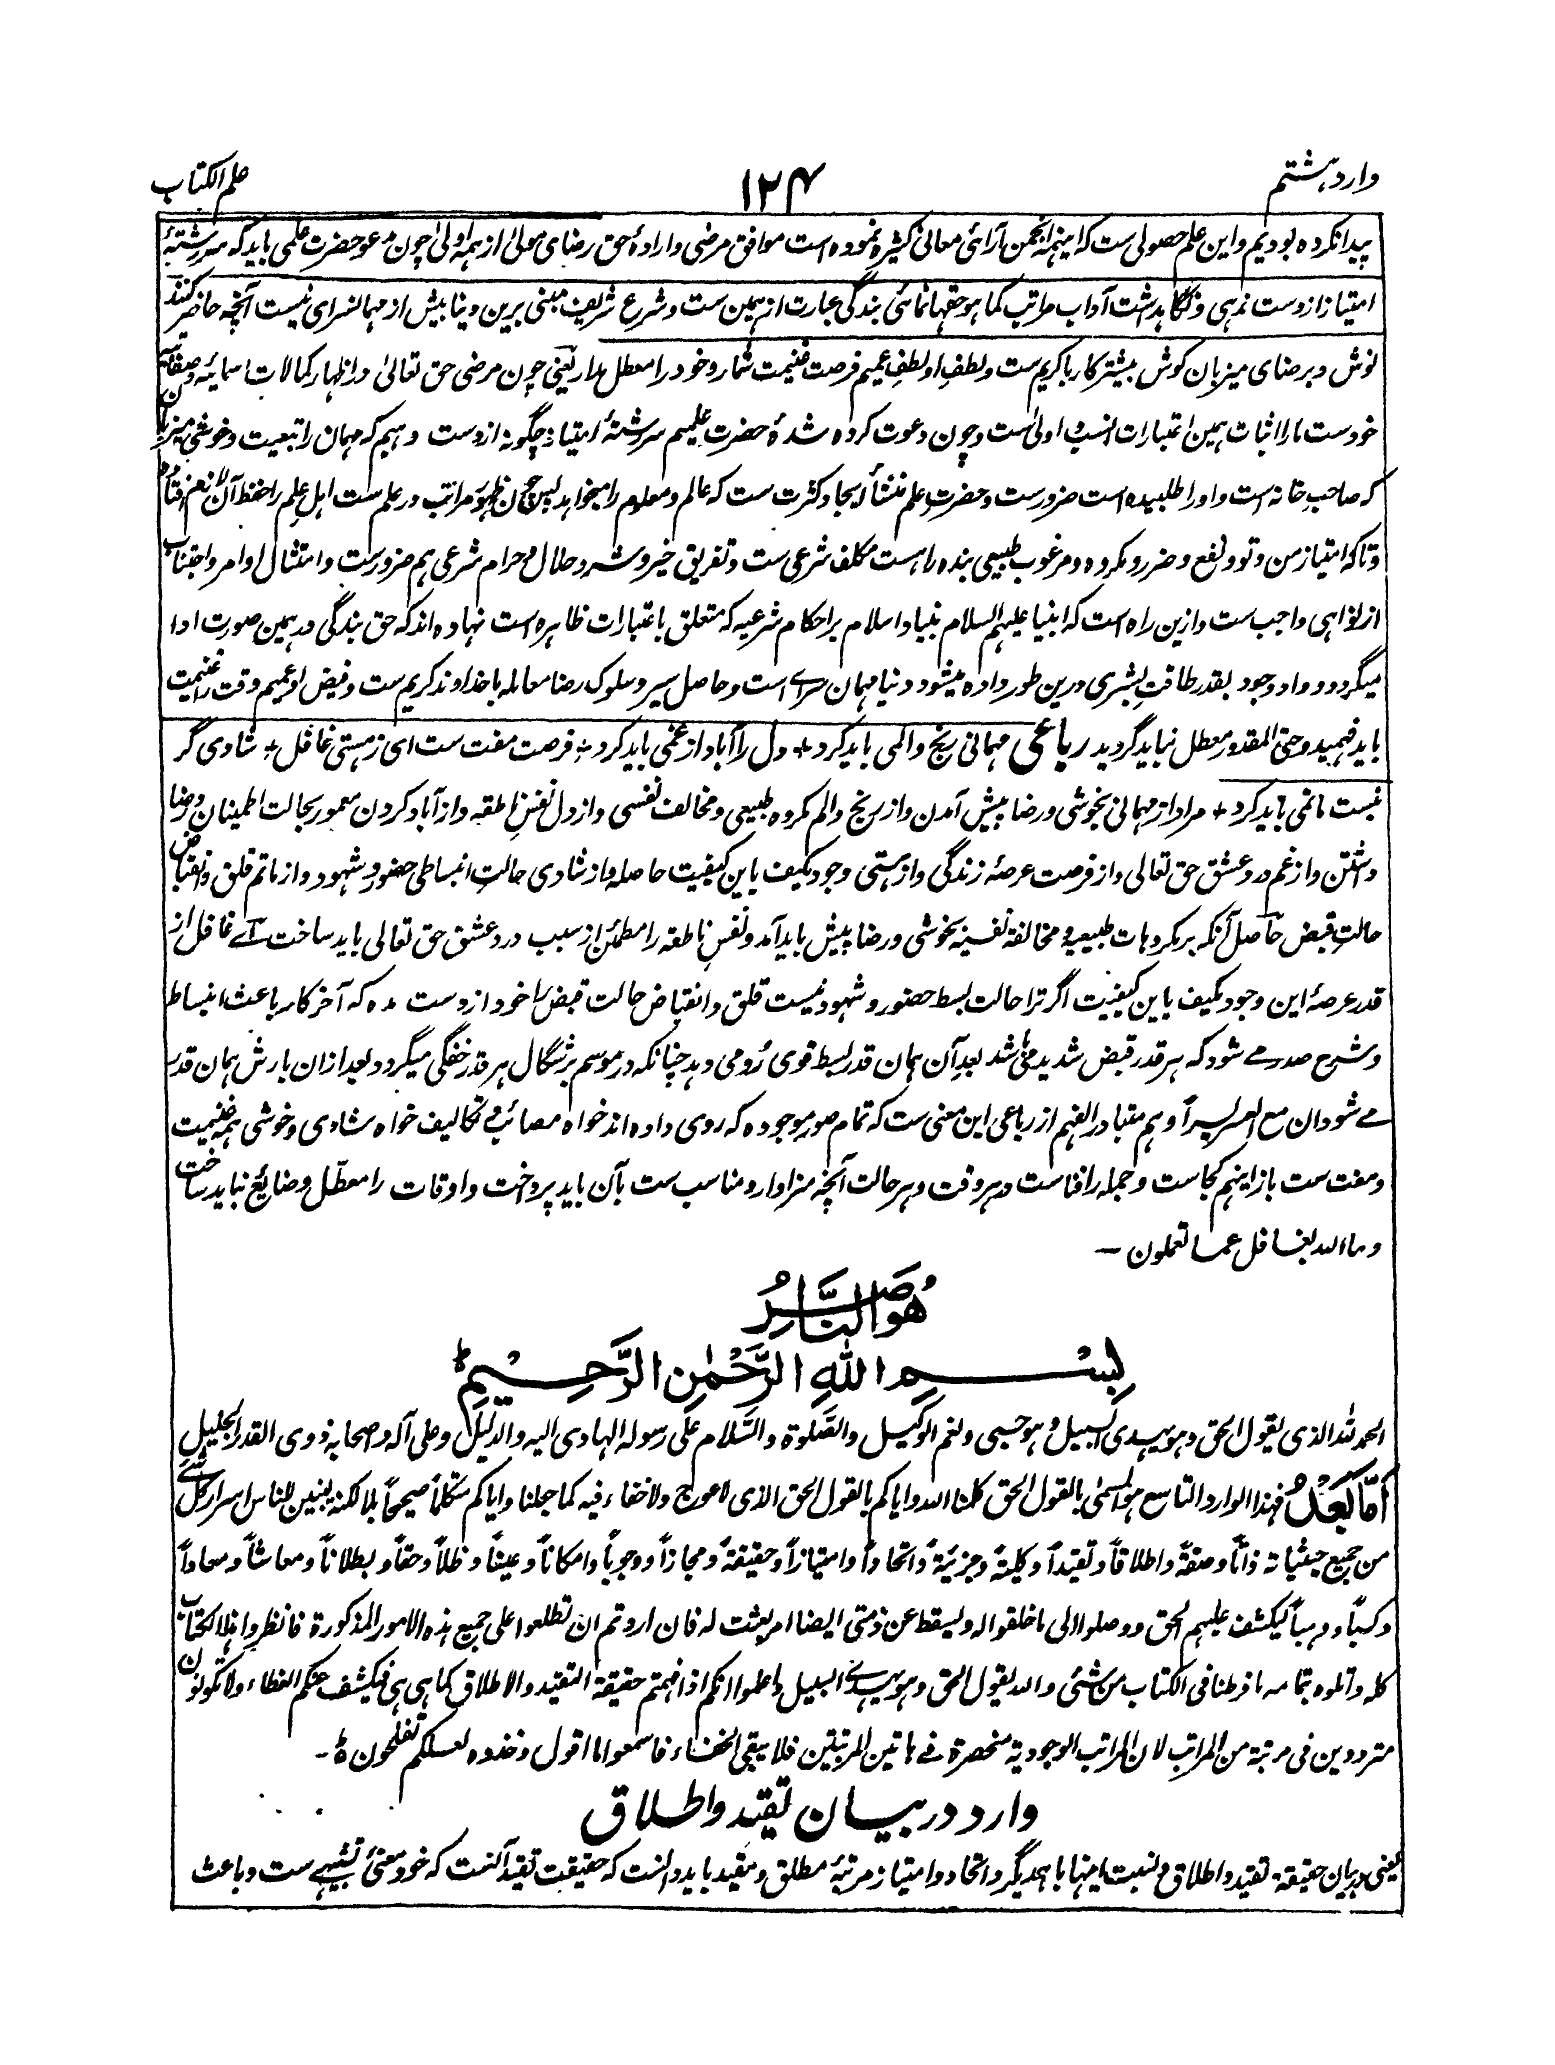 وارد هشتم
۱۲۴
علم الکتاب
پیدا نکرده بودیم و این علم حصولی ست که اینهمه انجمن آرائی معانی کثیره نموده است موافق مرضی و ارادهٔ حق رضای مولیٰ از همه اولیٰ چون مدعو حضرت علمی باید که سررشتهٔ
امتیاز از دست ندهی و نگاهداشت آداب مراتب کما هو حقها نمائی بندگی عبارت از همین ست و شرع شریف مبنی برین و دنیا بیش از مهمانسرای نیست آنچه حاضر کنند
نوش و برضای میزبان کوش بیشتر کار با کریم ست و لطفِ او لطفِ عمیم فرصت غنیمت شمار و خود را معطل مدار یعنی چون مرضی حق تعالیٰ در اظهار کمالات اسمائیه و صفاتیه
خودست ما را اثبات همین اعتبارات انسب و اولیٰ ست و چون دعوت کرده شدهٔ حضرت علمیم سررشتهٔ امتیاز چگونه از دست دهیم که مهمان را تبعیت و خوشی میزبان
که صاحبِ خانه است و او را طلبیده است ضرورست و حضرتِ علم منشأ ایجاد کثرت ست که عالم و معلوم را میخواهد پس چون ظهور مراتب در علم ست اهل علم را حفظ آن لازم افتاد
و تا که امتیاز من و تو و نفع و ضرر و مکروه و مرغوب طبیعی بنده را هست مکلف شرعی ست و تفریق خیر و شر و حلال و حرام شرعی هم ضرورست و امتثال اوامر و اجتناب
از نواهی واجب ست و ازین راه است که انبیا علیهم السلام بنیاد اسلام بر احکام شرعیه که متعلق باعتبارات ظاهره است نهاده اند که حق بندگی در همین صورت ادا
میگردد و داد وجود بقدر طاقتِ بشری درین طور داده میشود دنیا مهمان سرای است و حاصل سیر و سلوک رضا معامله با خداوند کریم ست و فیض او عمیم وقت را غنیمت
باید فهمید و حتی المقدور معطل نباید گردید رباعی مهمانی رنج و المی باید کرد + دل را آباد از غمی باید کرد + فرصت مفت ست ای ز هستی غافل + شادی گر
نیست ماتمی باید کرد + مراد از مهمانی بخوشی و رضا پیش آمدن و از رنج و الم مکروه طبیعی و مخالف نفسی و از دل نفسِ ناطقه و از آباد کردن معمور بحالت اطمینان و رضا
داشتن و از غم درد عشق حق تعالی و از فرصت عرصهٔ زندگی و از هستی وجود مکیف باین کیفیت حاصله و از شادی حالتِ انبساطی حضور و شهود و از ماتم قلق و انقباض
حالتِ قبض حاصل آنکه بر مکروهات طبیعیه و مخالفهٔ نفسیه بخوشی و رضا پیش باید آمد و نفسِ ناطقه را مطمئن از سبب درد عشق حق تعالی باید ساخت اے غافل از
قدر عرصهٔ این وجود مکیف باین کیفیت اگر ترا حالت بسط حضور و شهود نیست قلق و انقباض حالت قبض را خود از دست مده که آخر کار باعث انبساط
و شرح صدر مے شود که هر قدر قبض شدید می باشد بعد آن همان قدر بسط قوی رُو می دهد چنانکه در موسم برشکال هر قدر خفگی میگردد بعد ازان بارش همان قدر
مے شود ان مع العسر یسراً و هم متبادر الفهم از رباعی این معنی ست که تمام صور موجوده که روی داده اند خواه مصائب و تکالیف خواه شادی و خوشی همه غنیمت
و مفت ست باز اینهم کجاست و جمله را فناست در هر وقت و هر حالت آنچه سزاوار و مناسب ست بآن باید پرداخت و اوقات را معطّل و ضایع نباید ساخت
و ما الله بغافل عما تعملون –
هُوَ النَّاصِرُ
بِسْمِ اللهِ الرَّحْمٰنِ الرَّحِيْمِ
الحمد للّٰه الذی یقول الحق و هو یهدی السبیل و هو حسبی و نعم الوکیل والصَّلوٰة والسَّلام عَلٰی رسوله الهادی الیه والدلیل و علی آله و اصحابه ذوی القدر الجلیل
اَمَّا بَعْدُ فهذا الوارد التاسع هو المسمیٰ بالقول الحق کلمنا الله وایاکم بالقول الحق الذی لا عوج ولا خفاء فیه کما جعلنا وایاکم متکلماً صحیحاً بلا لکنة یبین للناس اسرار کل شے
من جمیع حیثیاته ذاتاً و صفةً و اطلاقاً و تقیداً و کلیةً و جزئیةً و اتحاداً و امتیازاً و حقیقةً و مجازاً و وجوباً و امکاناً و عیناً و ظلاً و حقاً و بطلاناً و معاشاً و معاداً
و کسباً و وهباً لیکشف علیهم الحق و وصلوا الی ما خلقوا له ولیسقط عن ذمتی ایضا امر بعثت له فان اردتم ان تطلعوا علی جمیع هذه الامور المذکورة فانظروا هذا الکتاب
کله واتلوه بتمامه ما فرطنا فی الکتاب من شئی والله یقول الحق وهو یهدی السبیل واعلموا انکم اذا فهمتم حقیقة التقید والاطلاق کما هی هی فیکشف عنکم الغطاء ولا تکونون
مترددین فی مرتبة من المراتب لان المراتب الوجودیة منحصرة فے هاتین المرتبتین فلا یبقی الخفاء فاسمعوا ما اقول وخذوه لعلکم تفلحون ۵ –
وارد در بیان تقید و اطلاق
یعنی در بیان حقیقة تقید و اطلاق و نسبت اینها با همدیگر و اتحاد و امتیاز مرتبهٔ مطلق و مقید باید دانست که حقیقت تقید آنست که خود معنیٔ تشبیهے ست و باعث